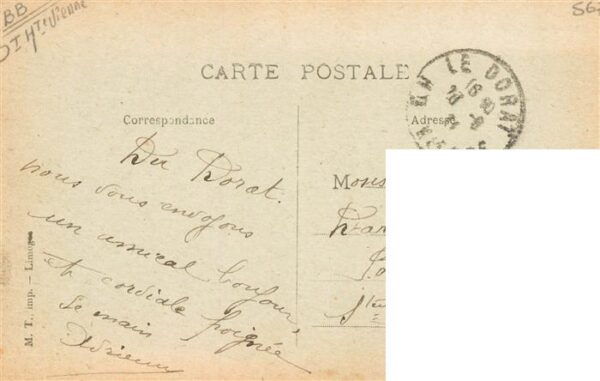 BB
Hte Vienne
567
CARTE POSTALE
LE DORAT
Correspondance
Adresse
Du Dorat.
nous vous envoyons
un amical bonjour,
et cordiale poignée
de main
Adrienne
Mons
M. T., imp. - Limoges